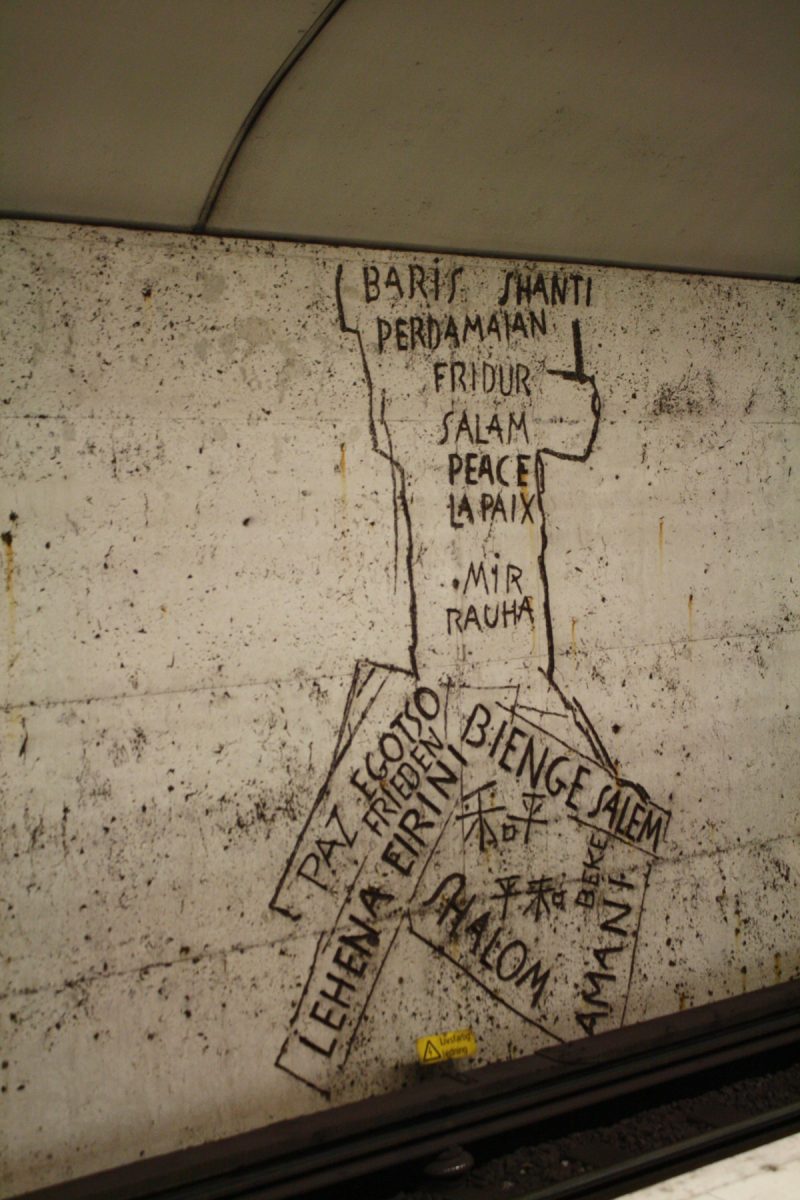 BARIS SHANTI
PERDAMAIAN
FRIDUR
SALAM
PEACE
LA PAIX
MIR
RAUHA
PAZ EGOTSO
FRIEDEN
LEHENA EIRINI
BIENGE SALEM
和平
平和
BEKE
SHALOM
AMANI
Livsfarlig
ledning